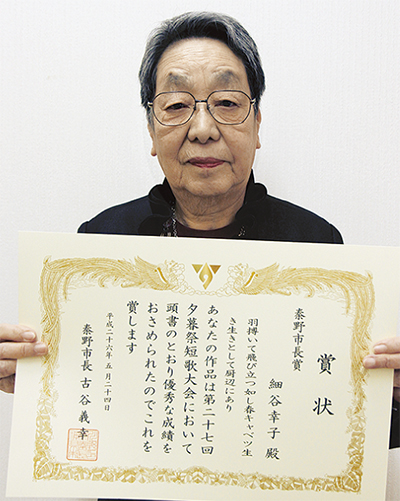 賞状
秦野市長賞
細谷幸子 殿
羽搏いて飛び立つ如し春キャベツ生
き生きとして厨辺にあり
あなたの作品は第二十七回
夕暮祭短歌大会において
頭書のとおり優秀な成績を
おさめられたのでこれを
賞します
平成二十六年五月二十四日
秦野市長 古谷義幸